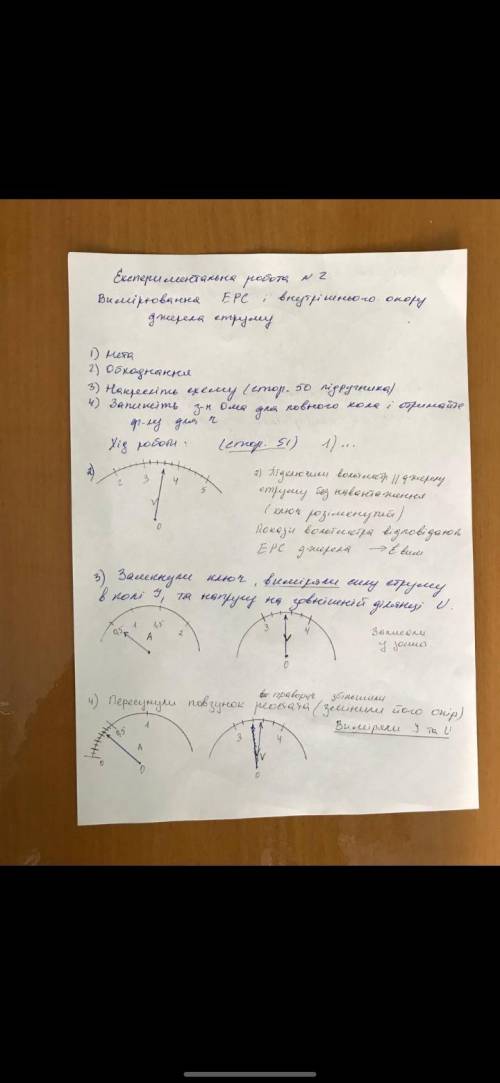 Експериментальна робота №2
Вимірювання ЕРС і внутрішнього опору
джерела струму
1) Мета
2) Обладнання
3) Накресліть схему (стор. 50 підручника)
4) Запишіть з-н Ома для повного кола і отримайте
ф-лу для r
Хід роботи: (стор. 51) 1)...
2)
2 3 4 5
V
0
2) Підключили вольтметр || джерелу
струму без навантаження
(ключ розімкнутий)
Покази вольтметра відповідають
ЕРС джерела → Евим
3) Замкнули ключ, виміряли силу струму
в колі I, та напругу на зовнішній ділянці U.
0,5 1 1,5 2
A
3 4
V
0
Записали
4) Пересунули повзунок реостата (змінили його опір)
праворуч збільшили
Виміряли I та U
0 0,5 1
A
0
3 4
V
0